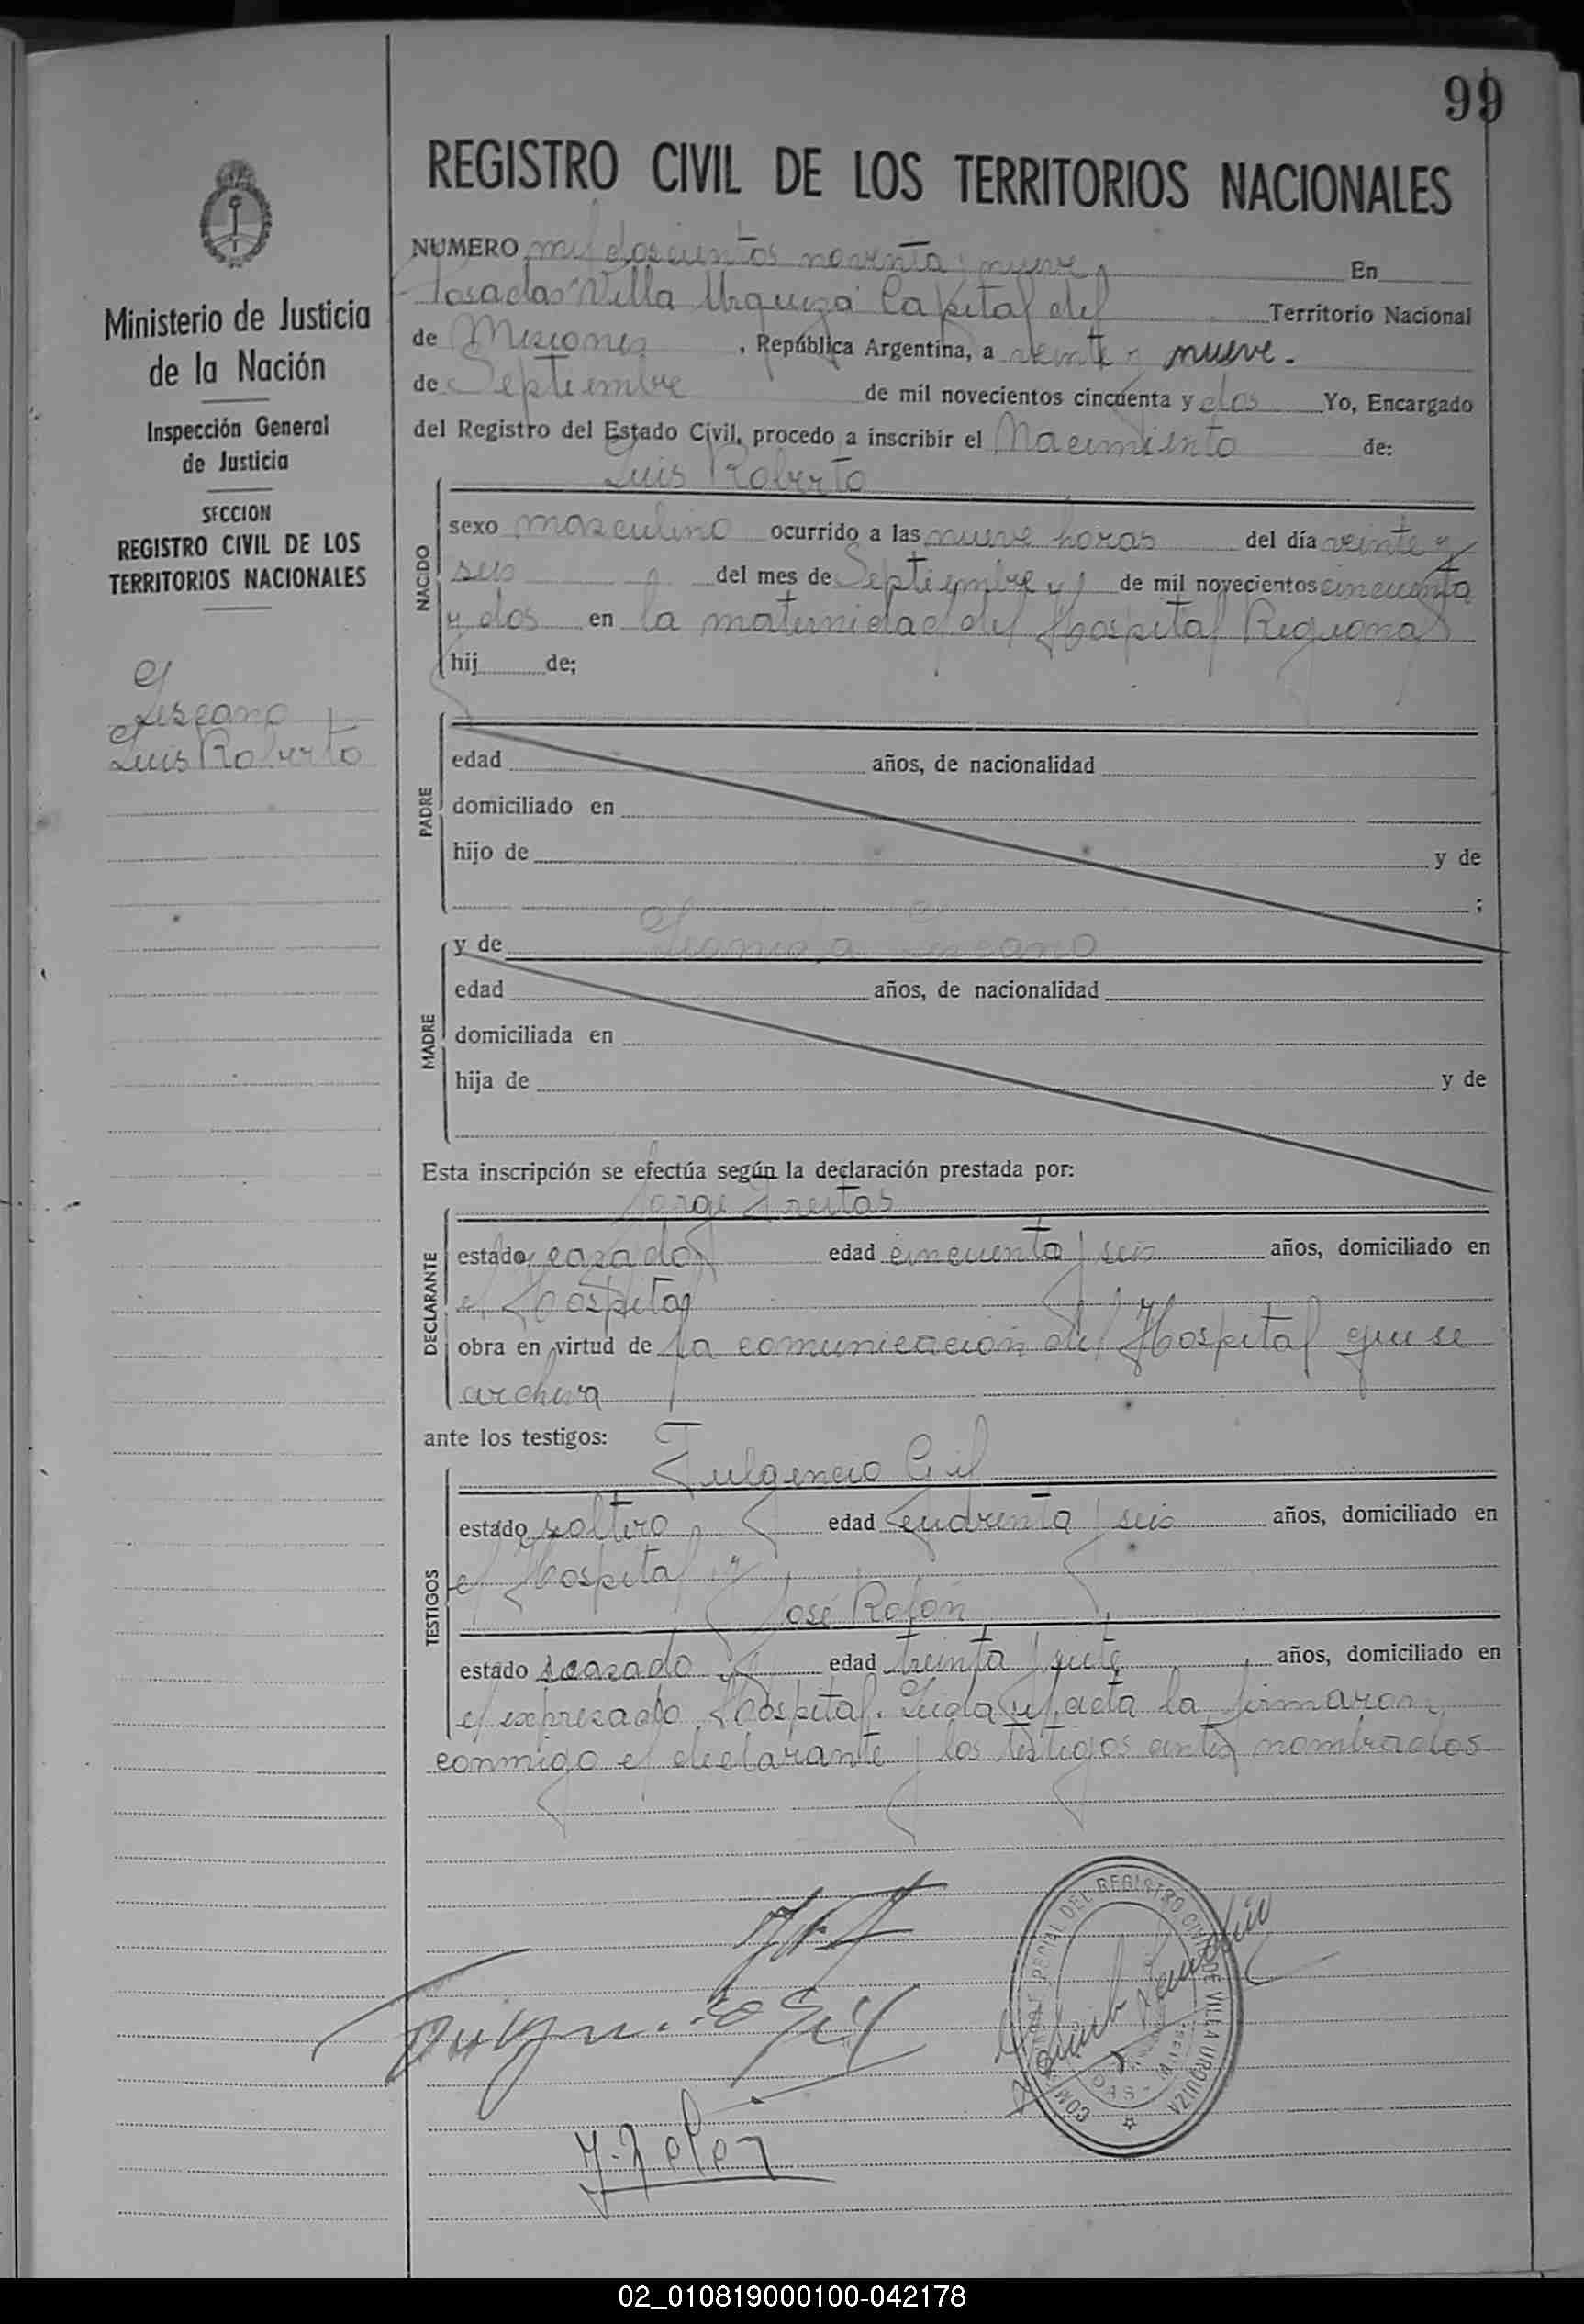 99
REGISTRO CIVIL DE LOS TERRITORIOS NACIONALES
Ministerio de Justicia
de la Nación
Inspección General
de Justicia
SECCION
REGISTRO CIVIL DE LOS
TERRITORIOS NACIONALES
Lescano
Luis Roberto
NUMERO mil doscientos noventa y nueve En
Posadas Villa Urquiza Capital del Territorio Nacional
de Misiones, República Argentina, a veinte y nueve.
de Septiembre de mil novecientos cincuenta y dos Yo, Encargado
del Registro del Estado Civil, procedo a inscribir el Nacimiento de:
Luis Roberto
NACIDO
sexo masculino ocurrido a las nueve horas del día veinte y
seis del mes de Septiembre de mil novecientos cincuenta
y dos en la maternidad del Hospital Regional
hij de;
PADRE
edad años, de nacionalidad
domiciliado en
hijo de y de
;
MADRE
y de Lescano
edad años, de nacionalidad
domiciliada en
hija de y de
Esta inscripción se efectúa según la declaración prestada por:
Jorge Freitas
DECLARANTE
estado casado edad cincuenta y seis años, domiciliado en
el Hospital
obra en virtud de la comunicacion del Hospital que se
archiva
ante los testigos:
Fulgencio Gil
TESTIGOS
estado soltero edad cuarenta y seis años, domiciliado en
el Hospital y
José Rolón
estado casado edad treinta y siete años, domiciliado en
el expresado Hospital. Leida el acta la firmaron
conmigo el declarante y los testigos antes nombrados
Fulgencio Gil
J. Rolon
DEL REGISTRO CIVIL DE VILLA URQUIZA
02_010819000100-042178